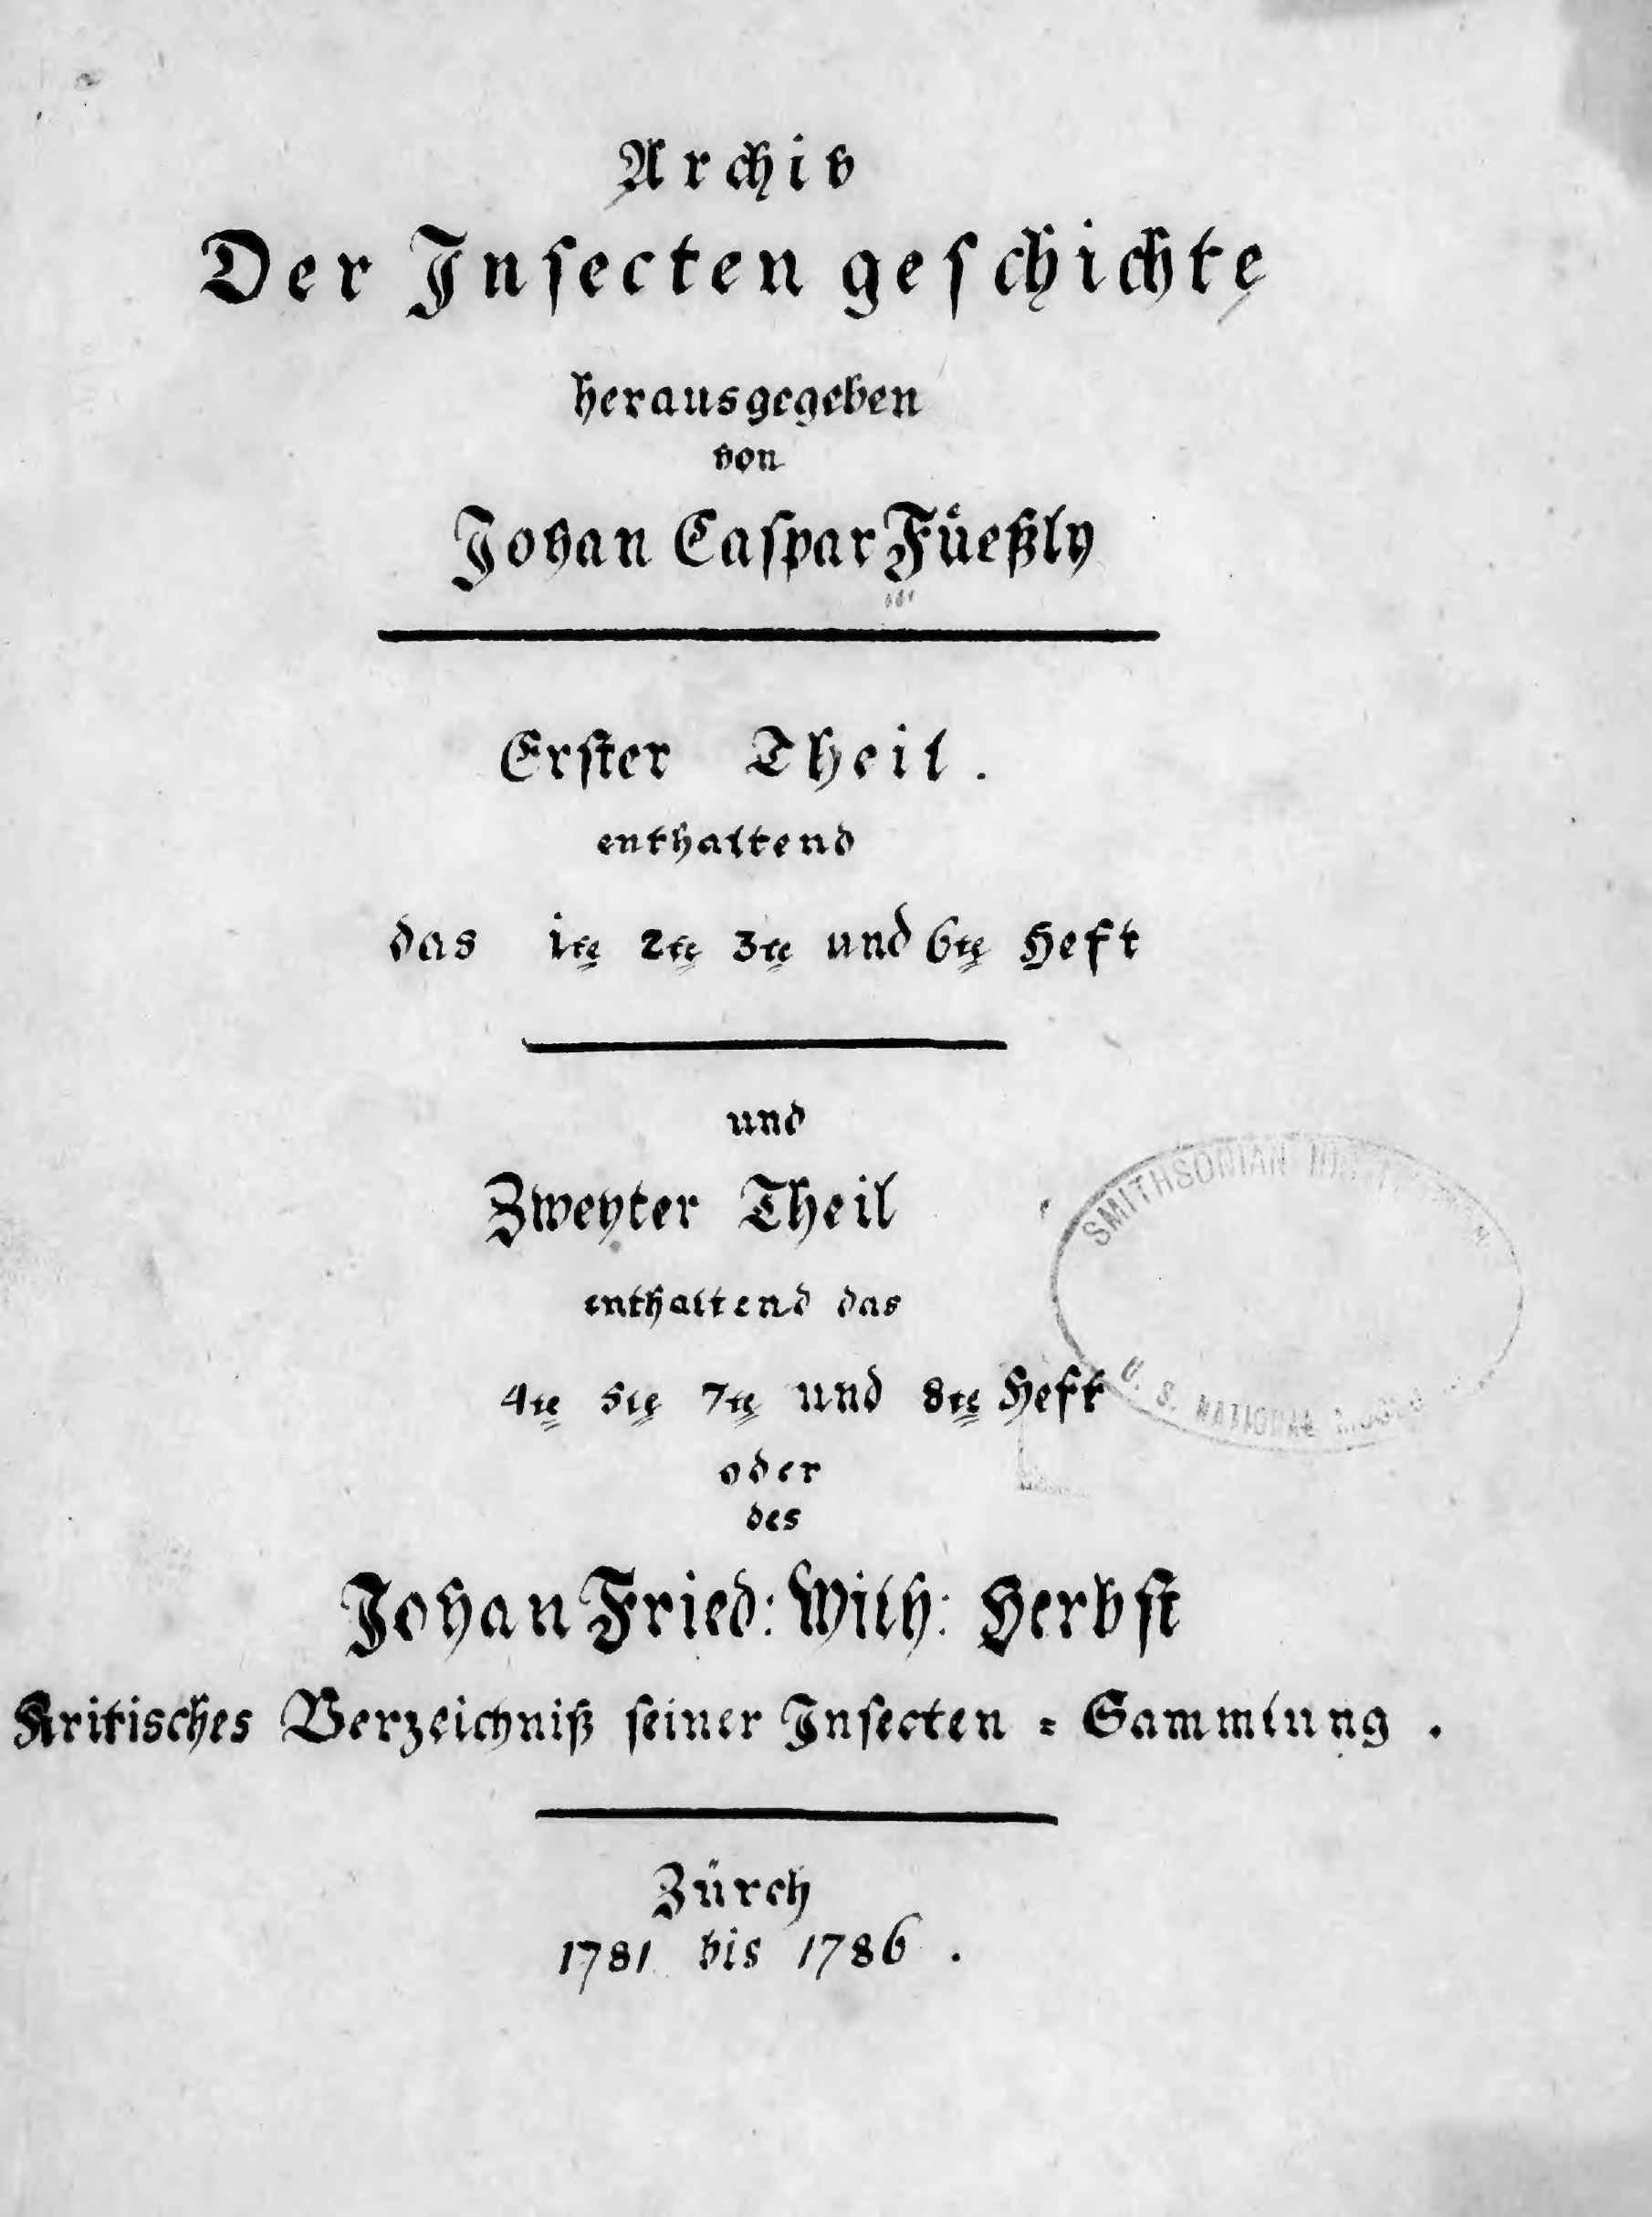 Archiv
Der Insecten geschichte
herausgegeben
von
Johan Caspar Füeßly
Erster Theil.
enthaltend
das 1te 2te 3te und 6te Heft
und
Zweyter Theil
enthaltend das
4te 5te 7te und 8te Heft
oder
des
Johan Fried: Wilh: Herbst
Kritisches Verzeichniß seiner Insecten = Sammlung.
Zürch
1781 bis 1786.
SMITHSONIAN
U. S. NATIONAL